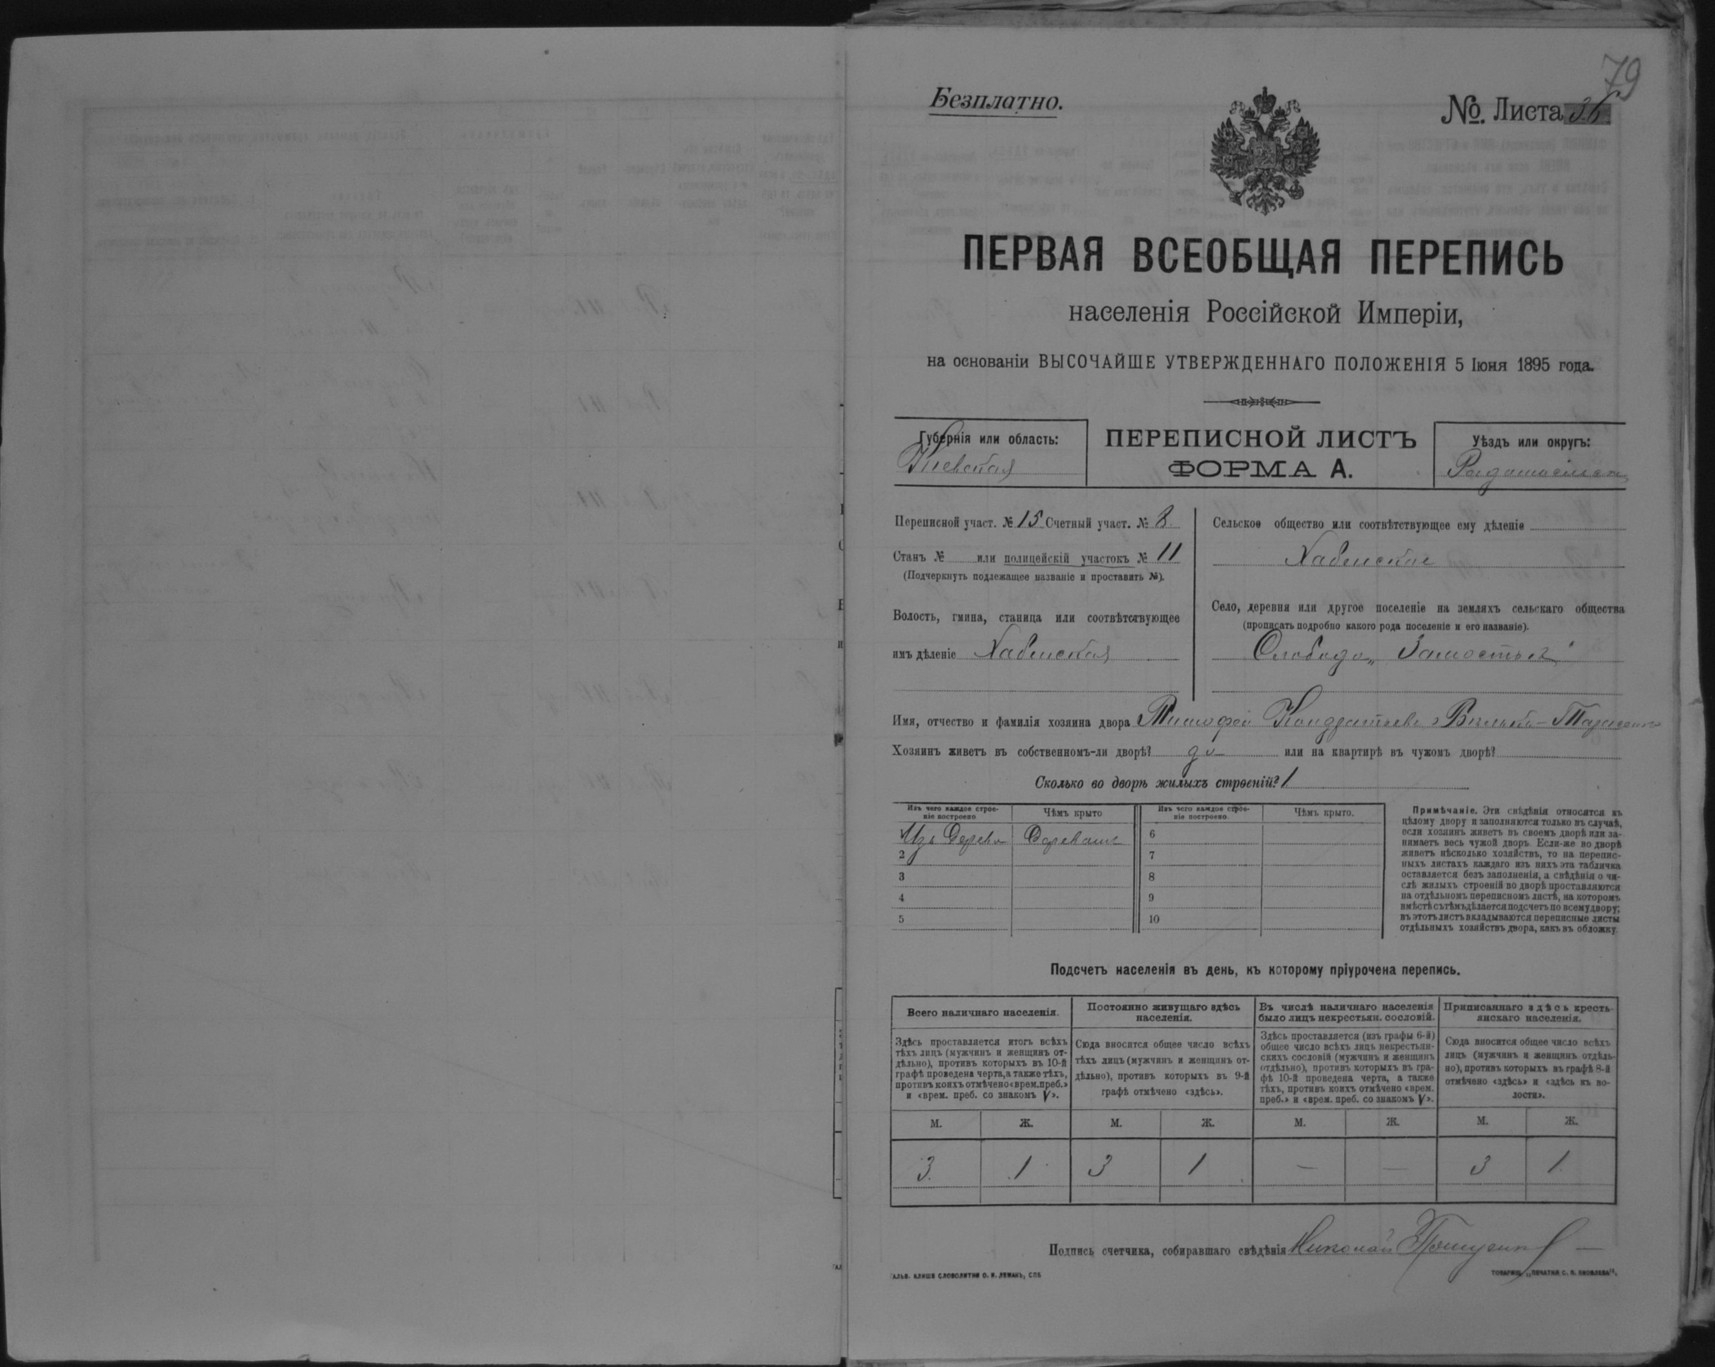 79
Безплатно.
№. Листа 36
ПЕРВАЯ ВСЕОБЩАЯ ПЕРЕПИСЬ
населенія Россійской Имперіи,
на основаніи ВЫСОЧАЙШЕ УТВЕРЖДЕННАГО ПОЛОЖЕНІЯ 5 Іюня 1895 года.
Губернія или область:
Кіевская
ПЕРЕПИСНОЙ ЛИСТЪ
ФОРМА А.
Уѣздъ или округъ:
Переписной участ. № 15 Счетный участ. № 8
Станъ № или полицейскій участокъ № 11
(Подчеркнуть подлежащее названіе и проставить №).
Волость, гмина, станица или соотвѣтствующее
имъ дѣленіе Хабенская
Сельское общество или соотвѣтствующее ему дѣленіе
Хабенское
Село, деревня или другое поселеніе на земляхъ сельскаго общества
(прописать подробно какого рода поселеніе и его названіе).
Слобода „Замостье"
Имя, отчество и фамилія хозяина двора Тимофей
Хозяинъ живетъ въ собственномъ-ли дворѣ? да или на квартирѣ въ чужомъ дворѣ?
Сколько во дворѣ жилыхъ строеній? 1
Изъ чего каждое строе-
ніе построено
Чѣмъ крыто
Изъ чего каждое строе-
ніе построено.
Чѣмъ крыто.
Изъ Дерева
6
2
7
3
8
4
9
5
10
Примѣчаніе. Эти свѣдѣнія относятся къ
цѣлому двору и заполняются только въ случаѣ,
если хозяинъ живетъ въ своемъ дворѣ или за-
нимаетъ весь чужой дворъ. Если-же во дворѣ
живетъ нѣсколько хозяйствъ, то на перепис-
ныхъ листахъ каждаго изъ нихъ эта табличка
оставляется безъ заполненія, а свѣдѣнія о чи-
слѣ жилыхъ строеній во дворѣ проставляются
на отдѣльномъ переписномъ листѣ, на которомъ
вмѣстѣ съ тѣмъ дѣлается подсчетъ по всему двору;
въ этотъ листъ вкладываются переписные листы
отдѣльныхъ хозяйствъ двора, какъ въ обложку.
Подсчетъ населенія въ день, къ которому пріурочена перепись.
Всего наличнаго населенія.
Здѣсь проставляется итогъ всѣхъ
тѣхъ лицъ (мужчинъ и женщинъ от-
дѣльно), противъ которыхъ въ 10-й
графѣ проведена черта, а также тѣхъ,
противъ коихъ отмѣчено «врем. преб.»
и «врем. преб. со знакомъ V».
Постоянно живущаго здѣсь
населенія.
Сюда вносится общее число всѣхъ
тѣхъ лицъ (мужчинъ и женщинъ от-
дѣльно), противъ которыхъ въ 9-й
графѣ отмѣчено «здѣсь».
Въ числѣ наличнаго населенія
было лицъ некрестьян. сословій.
Здѣсь проставляется (изъ графы 6-й)
общее число всѣхъ лицъ некрестьян-
скихъ сословій (мужчинъ и женщинъ
отдѣльно), противъ которыхъ въ гра-
фѣ 10-й проведена черта, а также
тѣхъ, противъ коихъ отмѣчено «врем.
преб.» и «врем. преб. со знакомъ V».
Приписаннаго здѣсь кресть-
янскаго населенія.
Сюда вносится общее число всѣхъ
лицъ (мужчинъ и женщинъ отдѣль-
но), противъ которыхъ въ графѣ 8-й
отмѣчено «здѣсь» и «здѣсь въ во-
лости».
М. Ж. М. Ж. М. Ж. М. Ж.
3 1 3 1 — — 3 1
Подпись счетчика, собиравшаго свѣдѣнія Николай
СЛОВОЛИТНИ О. И. ЛЕМАНЪ, СПБ
ТОВАРИЩ. „ПЕЧАТНЯ С. П. ЯКОВЛЕВА".